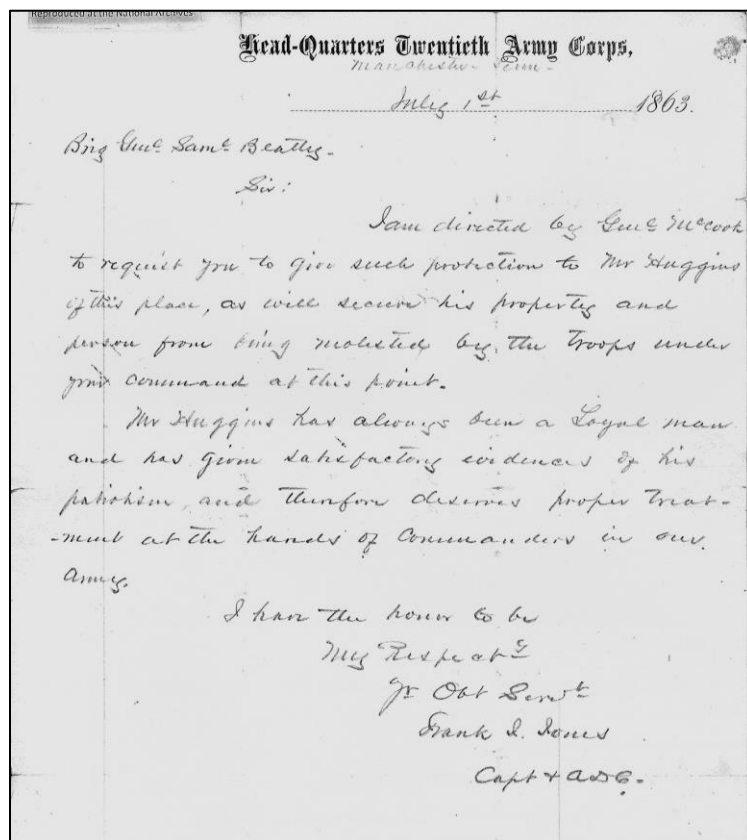 Reproduced at the National Archives
Head-Quarters Twentieth Army Corps,
Manchester Tenn-
July 1st 1863.
Brig Genl Saml Beatty-
Sir:
I am directed by Genl McCook
to request you to give such protection to Mr Huggins
of this place, as will secure his property and
person from being molested by the troops under
your command at this point.
Mr Huggins has always been a Loyal man
and has given satisfactory evidences of his
patriotism and therefore deserves proper treat-
-ment at the hands of Commanders in our
Army.
I have the honor to be
Very Respecty
Yr Obt Servt
Frank J. Jones
Capt & ADC.